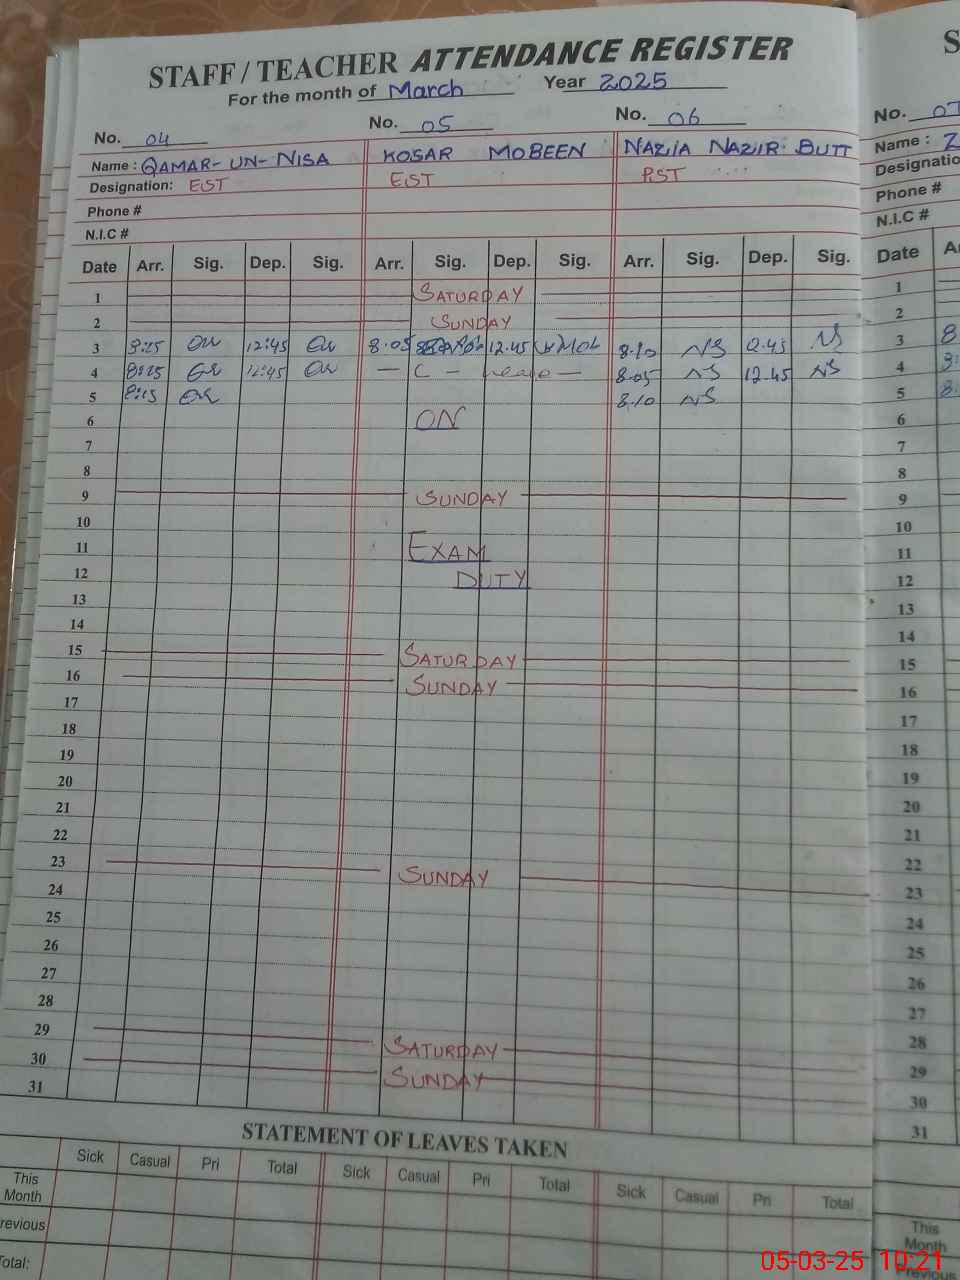 STAFF / TEACHER ATTENDANCE REGISTER
For the month of March Year 2025
No. 04 No. 05 No. 06 No. 07
Name : QAMAR-UN-NISA KOSAR MOBEEN NAZIA NAZIR BUTT Name : Z
Designation: EST EST PST Designatio
Phone # Phone #
N.I.C # N.I.C #
Date Arr. Sig. Dep. Sig. Arr. Sig. Dep. Sig. Arr. Sig. Dep. Sig. Date
1 SATURDAY 1
2 SUNDAY 2
3 8:25 12:45 8.05 12.45 8.10 NS 12.45 NS 3
4 8:25 12:45 — C — leave — 8.05 NS 12.45 NS 4
5 8:15 8.10 NS 5
6 ON 6
7 7
8 8
9 SUNDAY 9
10 10
11 EXAM 11
12 DUTY 12
13 13
14 14
15 SATURDAY 15
16 SUNDAY 16
17 17
18 18
19 19
20 20
21 21
22 22
23 SUNDAY 23
24 24
25 25
26 26
27 27
28 28
29 SATURDAY 29
30 SUNDAY 30
31 31
STATEMENT OF LEAVES TAKEN
Sick Casual Pri Total Sick Casual Pri Total Sick Casual Pri Total
This Month This Month
revious Previous
otal:
05-03-25 10:21